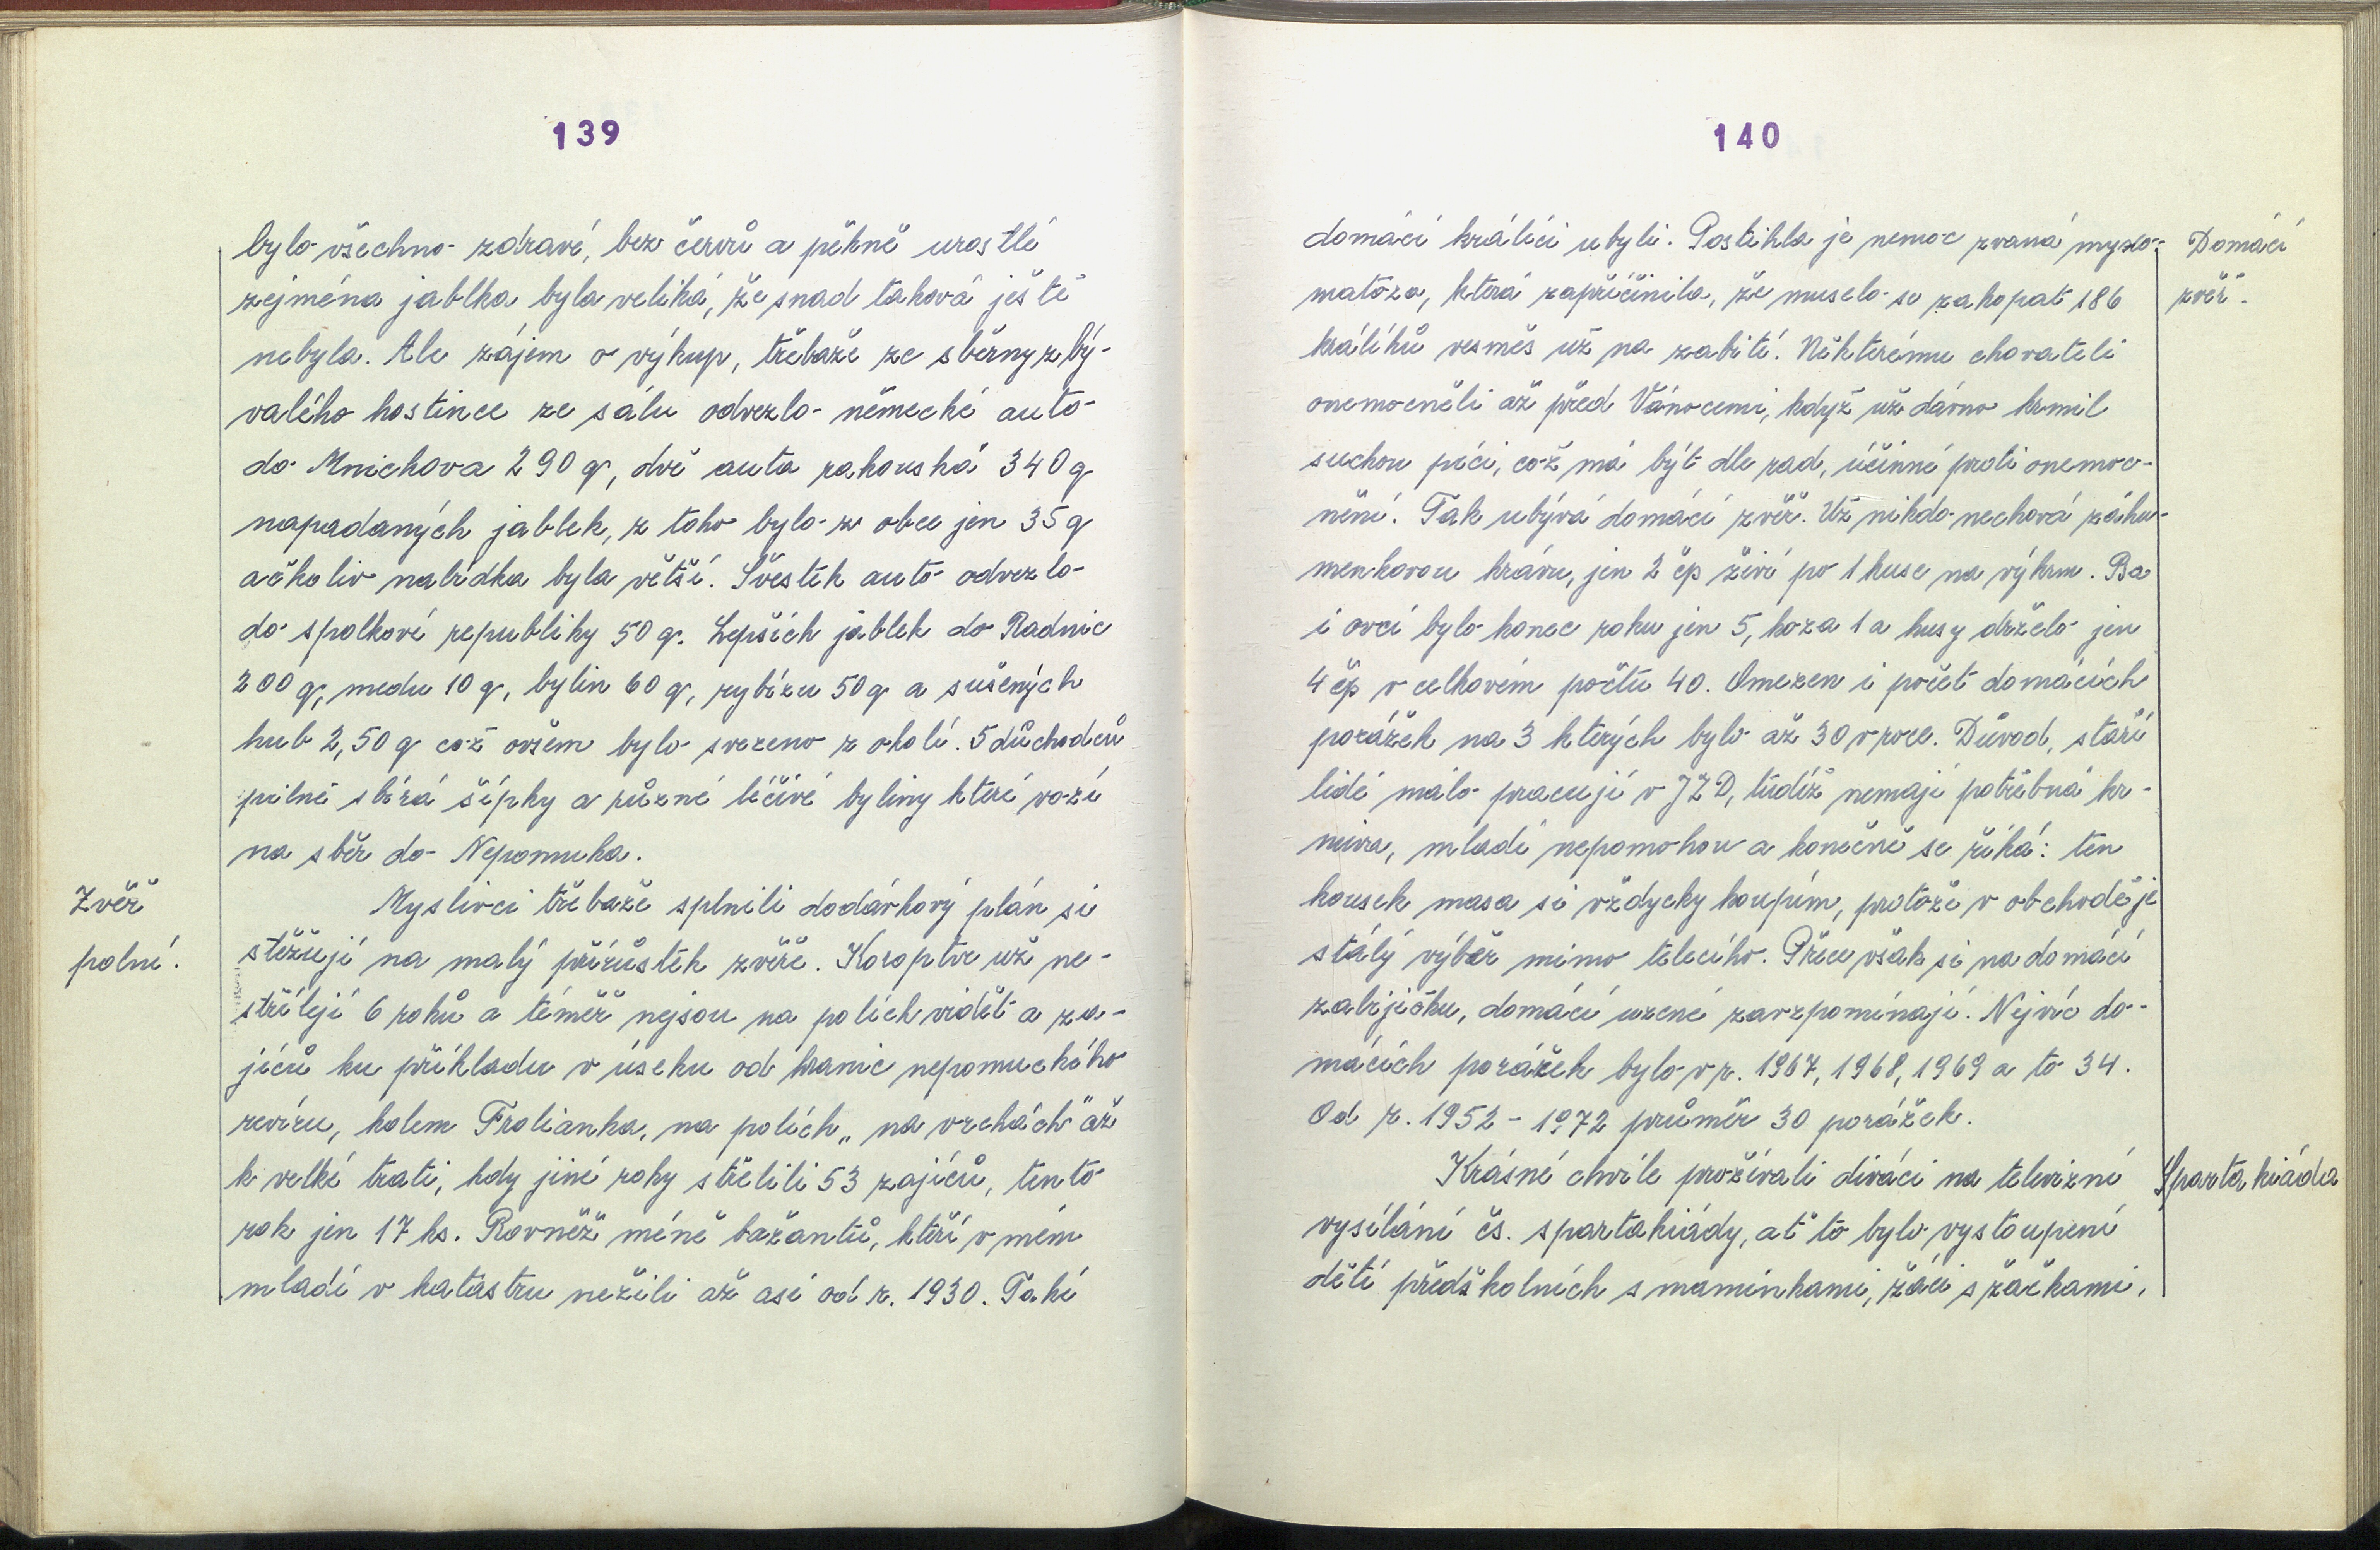 139
bylo všechno zdravé, bez červů a pěkně urostlé
zejména jablka byla veliká, že snad taková ještě
nebyla. Ale zájem o výkup, třebaže ze sběrny z bý-
valého hostince ze sálu odvezlo německé auto
do Mnichova 290 q, dvě auta rakouská 340 q
napadaných jablek, z toho bylo z obce jen 35 q
ačkoliv nabídka byla větší. Švestek auto odvezlo
do spolkové republiky 50 q. Lepších jablek do Radnic
200 q, medu 10 q, bylin 60 q, rybízu 50 q a sušených
hub 2,50 q což ovšem bylo svezeno z okolí. 5 důchodců
pilně sbírá šípky a různé léčivé byliny které vozí
na sběr do Nepomuka.
Zvěř
polní.
Myslivci třebaže splnili dodávkový plán si
stěžují na malý přírůstek zvěře. Koroptve už ne-
střílejí 6 roků a téměř nejsou na polích vidět a za-
jíců ku příkladu v úseku od hranic nepomuckého
revíru, kolem Frolianka, na polích „na vrchách" až
k velké trati, kdy jiné roky střelili 53 zajíců, tento
rok jen 17 ks. Rovněž méně bažantů, kteří v mém
mladí v katastru nežili až asi od r. 1930. Také
140
domácí králíci ubyli. Postihla je nemoc zvaná myxo-
matoza, která zapříčinila, že muselo se zakopat 186
králíků vesměs už na zabití. Některému chovateli
onemocněli až před Vánocemi, když už dávno krmil
suchou pící, což má být dle rad, účinné proti onemoc-
nění. Tak ubývá domácí zvěř. Už nikdo nechová záhu-
menkovou krávu, jen 2 čp živí po 1 kuse na výkrm. Ba
i ovcí bylo konec roku jen 5, koza 1 a husy drželo jen
4 čp v celkovém počtu 40. Omezen i počet domácích
porážek na 3 kterých bylo až 30 v roce. Důvod, staří
lidé málo pracují v JZD, tudíž nemají potřebná kr-
miva, mladí nepomohou a konečně se říká: ten
kousek masa si vždycky koupím, protože v obchodě je
stálý výběr mimo telecího. Přece však si na domácí
zabijačku, domácí uzené zavzpomínají. Nejvíc do-
mácích porážek bylo v r. 1967, 1968, 1969 a to 34.
Od r. 1952 - 1972 průměr 30 porážek.
Krásné chvíle prožívali diváci na televizní
vysílání čs. spartakiády, ať to bylo vystoupení
dětí předškolních s maminkami, žáci s žačkami,
Domácí
zvěř.
Spartakiáda